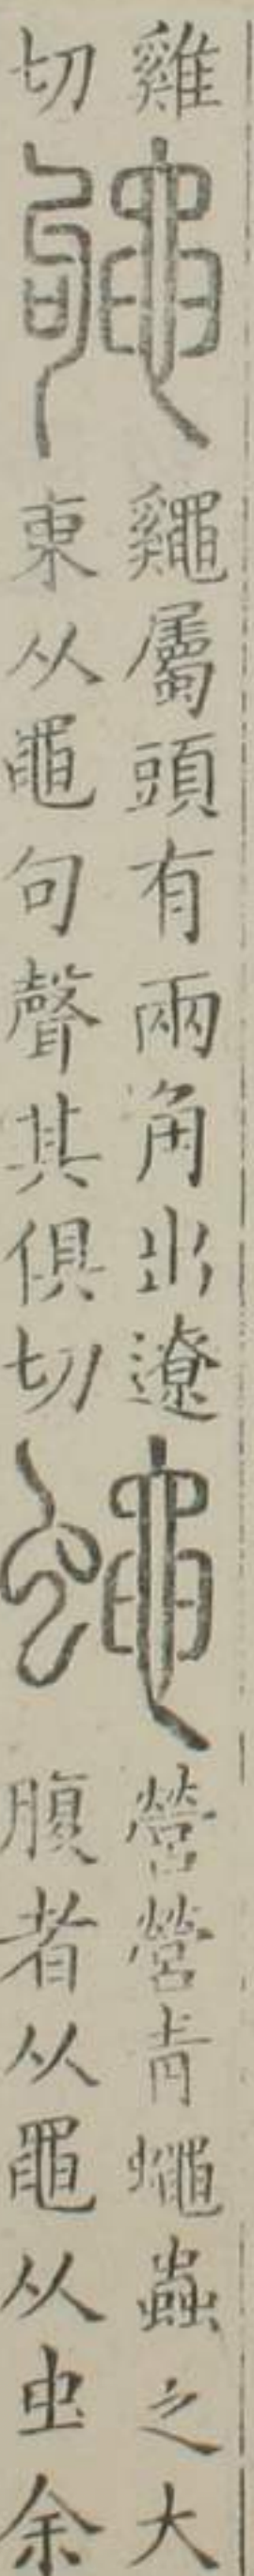 雞
切
䵶
䵹屬頭有兩角出遼
東从黽句聲其俱切
蠅
營營青蠅蟲之大
腹者从黽从虫余